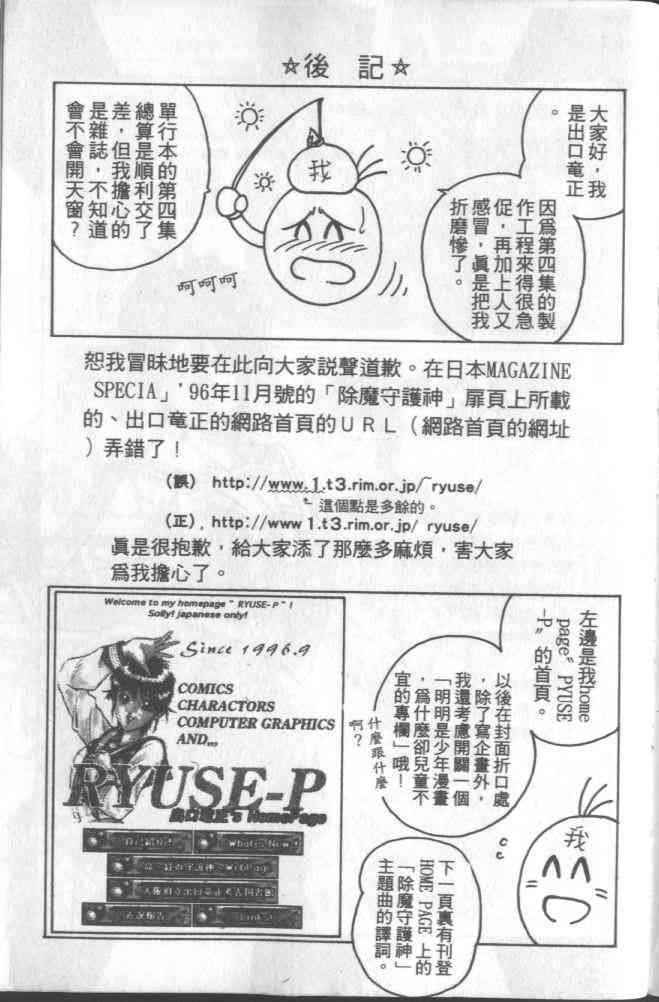 ☆後 記☆
大家好，我
是出口竜正
。
因為第四集的製
作工程來得很急
促，再加上人又
感冒，眞是把我
折磨慘了。
我
呵呵呵
單行本的第四集
總算是順利交了
差，但我擔心的
是雜誌，不知道
會不會開天窗？
恕我冒昧地要在此向大家説聲道歉。在日本MAGAZINE
SPECIA」'96年11月號的「除魔守護神」扉頁上所載
的、出口竜正的網路首頁的ＵＲＬ（網路首頁的網址
）弄錯了！
（誤） http://www.1.t3.rim.or.jp/~ryuse/
這個點是多餘的。
（正）. http://www1.t3.rim.or.jp/ ryuse/
眞是很抱歉，給大家添了那麼多麻煩，害大家
爲我擔心了。
左邊是我home
page"PYUSE
-P"的首頁。
以後在封面折口處
，除了寫企畫外，
我還考慮開闢一個
「明明是少年漫畫
，爲什麼卻兒童不
宜的專欄」哦！
什麼跟什麼
啊？
我
下一頁裏有刊登
HOME PAGE 上的
「除魔守護神」
主題曲的譯詞。
Welcome to my homepage " RYUSE-P " !
Solly! japanese only!
Since 1996.9
COMICS
CHARACTORS
COMPUTER GRAPHICS
AND,,,
RYUSE-P
出口竜正's HomePage
What's New !